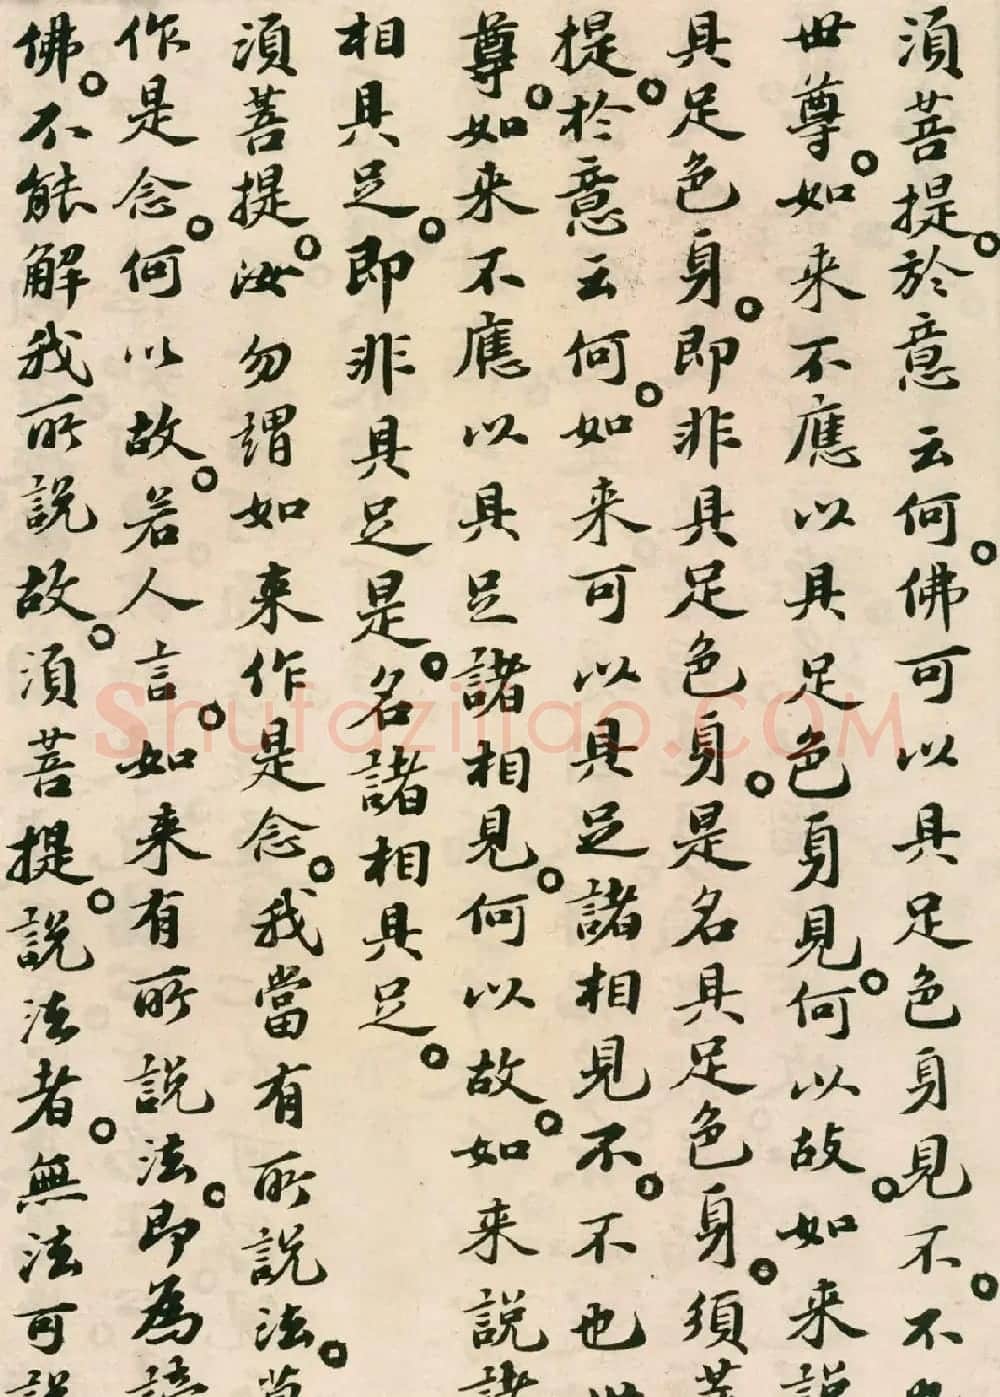 須菩提。於意云何。佛可以具足色身見不。不
世尊。如来不應以具足色身見。何以故。如来說
具足色身。即非具足色身。是名具足色身。須菩
提。於意云何。如来可以具足諸相見不。不也
尊。如来不應以具足諸相見。何以故。如来說諸
相具足。即非具足是。名諸相具足。
須菩提。汝勿謂如来作是念。我當有所說法。
作是念。何以故。若人言。如来有所說法。即為
佛。不能解我所說故。須菩提。說法者。無法可說
Shufaziliao.COM